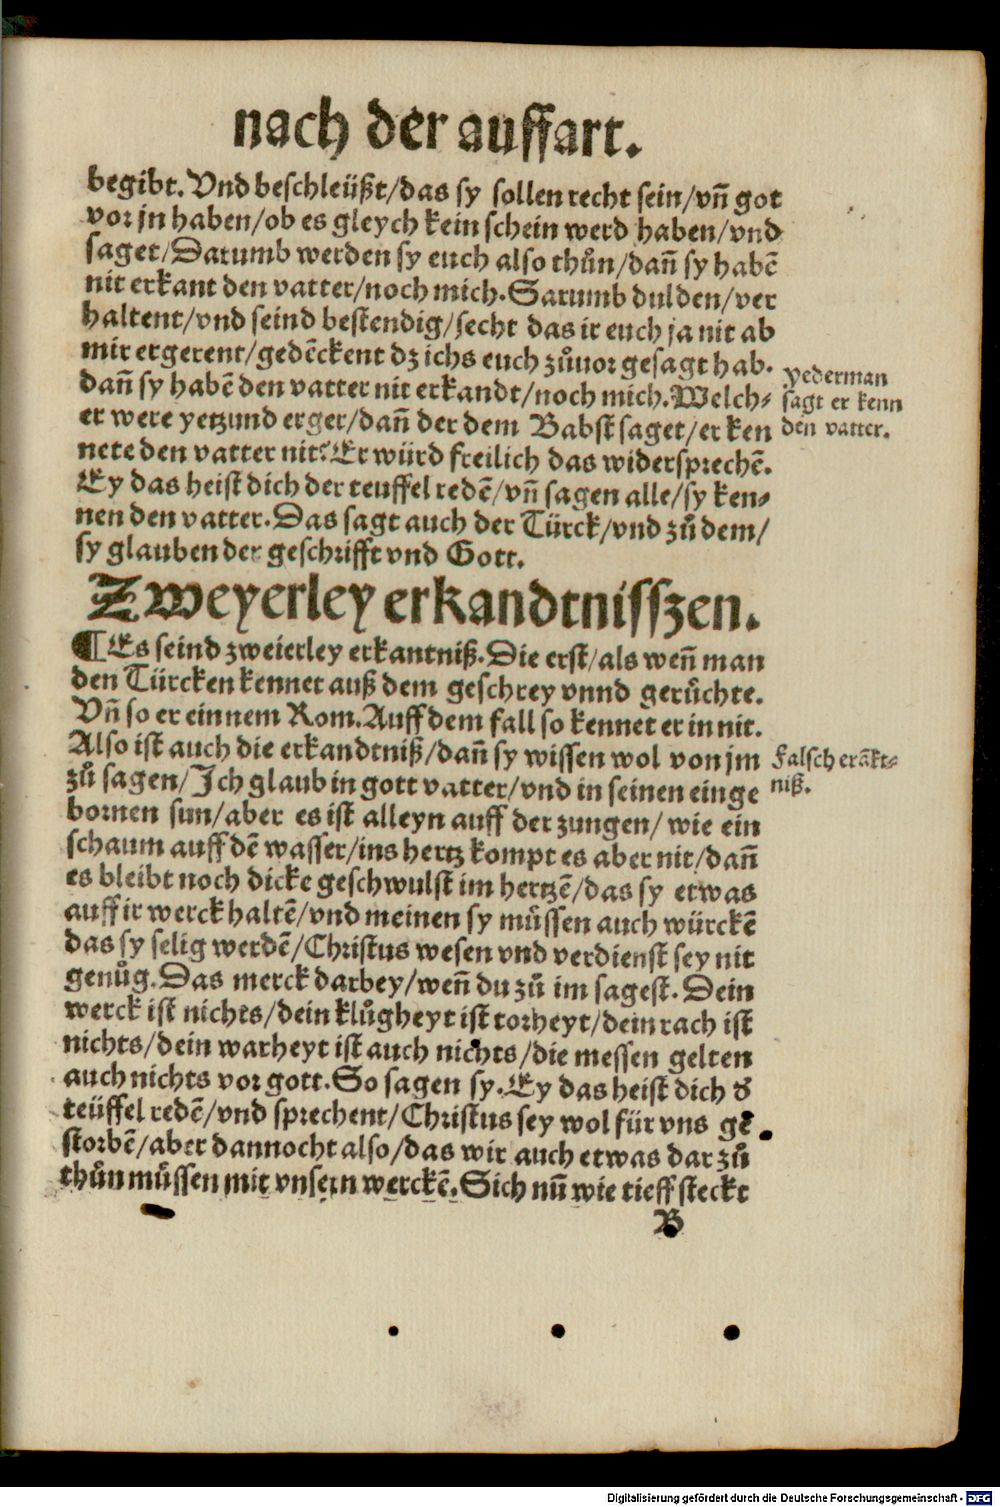 nach der auffart.
begibt. Vnd beschleüßt/das sy sollen recht sein/vñ got
vor jn haben/ob es gleych kein schein werd haben/vnd
saget/Darumb werden sy euch also thůn/dañ sy habē
nit erkant den vatter/noch mich. Sarumb dulden/ver
haltent/vnd seind bestendig/secht das ir euch ja nit ab
mir ergerent/gedēckent dz ichs euch zůuor gesagt hab.
dañ sy habē den vatter nit erkandt/noch mich. Welch⸗
er were yetzund erger/dañ der dem Babst saget/er ken
nete den vatter nit? Er würd freilich das widersprechē.
Ey das heist dich der teuffel redē/vñ sagen alle/sy ken⸗
nen den vatter. Das sagt auch der Türck/vnd zů dem/
sy glauben der geschrifft vnd Gott.
yederman
sagt er kenn
den vatter.
Zweyerley erkandtnisszen.
¶ Es seind zweierley erkantniß. Die erst/als weñ man
den Türcken kennet auß dem geschrey vnnd gerůchte.
Vñ so er einnem Rom. Auff dem fall so kennet er in nit.
Also ist auch die erkandtniß/dañ sy wissen wol von jm
zů sagen/Ich glaub in gott vatter/vnd in seinen einge
bornen sun/aber es ist alleyn auff der zungen/wie ein
schaum auff dē wasser/ins hertz kompt es aber nit/dañ
es bleibt noch dicke geschwulst im hertzē/das sy etwas
auff ir werck haltē/vnd meinen sy můssen auch würckē
das sy selig werdē/Christus wesen vnd verdienst sey nit
genůg. Das merck darbey/weñ du zů im sagest. Dein
werck ist nichts/dein klůgheyt ist torheyt/dein rach ist
nichts/dein warheyt ist auch nichts/die messen gelten
auch nichts vor gott. So sagen sy. Ey das heist dich d̕
teüffel redē/vnd sprechent/Christus sey wol für vns ge
storbē/aber dannocht also/das wir auch etwas dar zů
thůn můssen mit vnsern werckē. Sich nů wie tieff steckt
Falsch erākt⸗
niß.
B
Digitalisierung gefördert durch die Deutsche Forschungsgemeinschaft - DFG